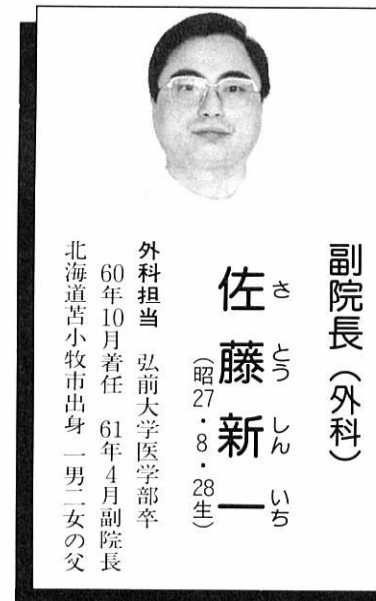 副院長（外科）
さとうしんいち
佐藤新一
（昭27・8・28生）
外科担当　弘前大学医学部卒
60年10月着任　61年4月副院長
北海道苫小牧市出身　一男二女の父